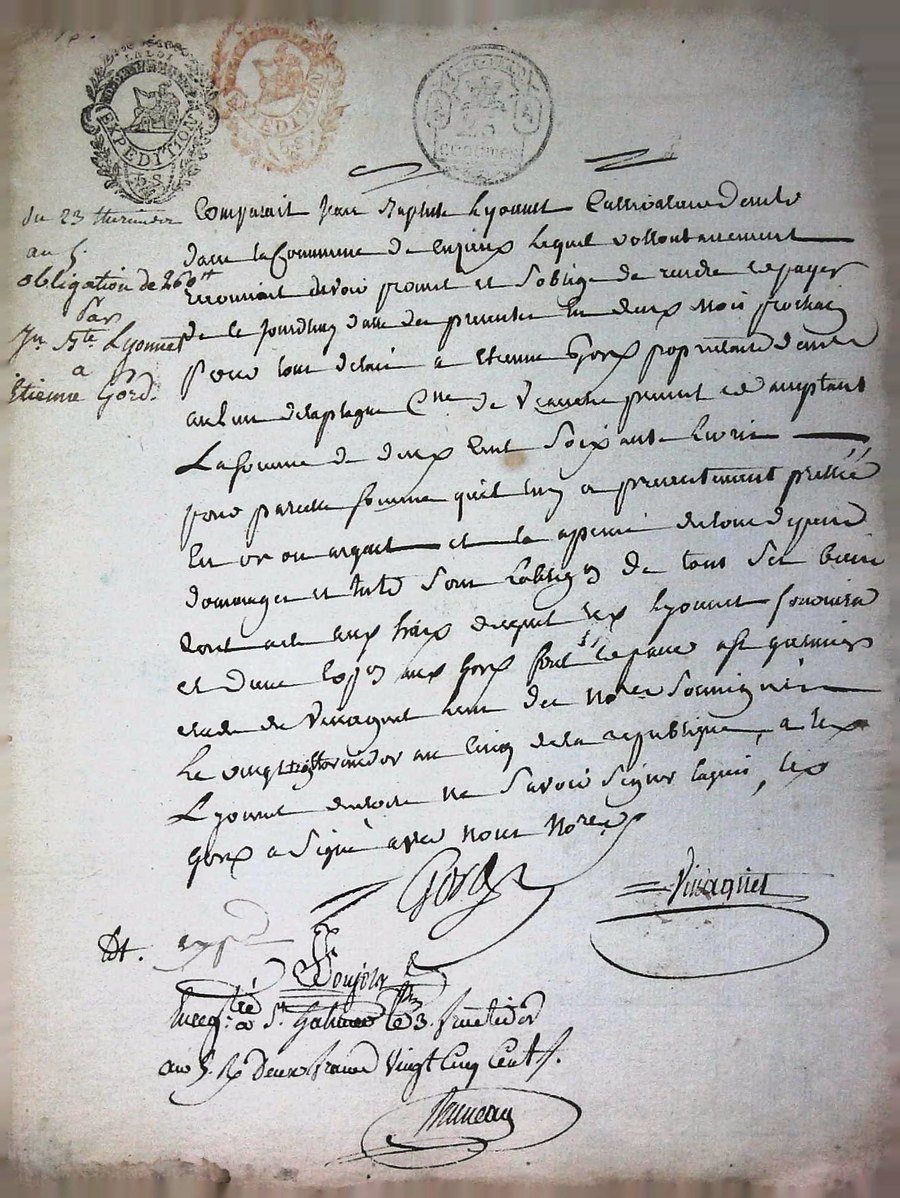 LA LOI
EXPEDITION
EXPEDITION
25
centimes
du 23 thermidor
an 5.
obligation de 260 tt
Par
Jn. Bte. Lyonnet
a
Etienne Gord.
Comparait Jean Baptiste Lyonnet demte
dans la Commune de lequel vollontairement
reconnait devoir promet et s'oblige de rendre et payer
de ce jourdhuy datte des presentes En deux mois prochain
pour tout delai a Etienne Gord proprietaire demte
au lieu delaplagne Cne de Veauche present et acceptant
La somme de deux Cent Soixante Livres
pour pareille somme quil luy a presentement prettée
En or ou argent et a peine de tous depend
domages et Sous Lobligon de tous ses biens
aux fraix Lyonnet fournira
et dune aux Gord
etude de Viraguet lun des Nores Soussignés
Le vingt trois thermidor an Cinq dela republique, a
Lyonnet declaré ne Savoir Signer Enquis,
Gord a Signé avec nous Nores
Gord
Viraguet
Et.
Doujoin
Enregtré a St Galmier le 3. fructidor
an 5. R deux francs Vingt Cinq Cent.